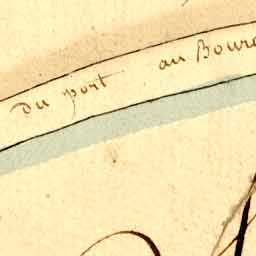 du port au Bourg